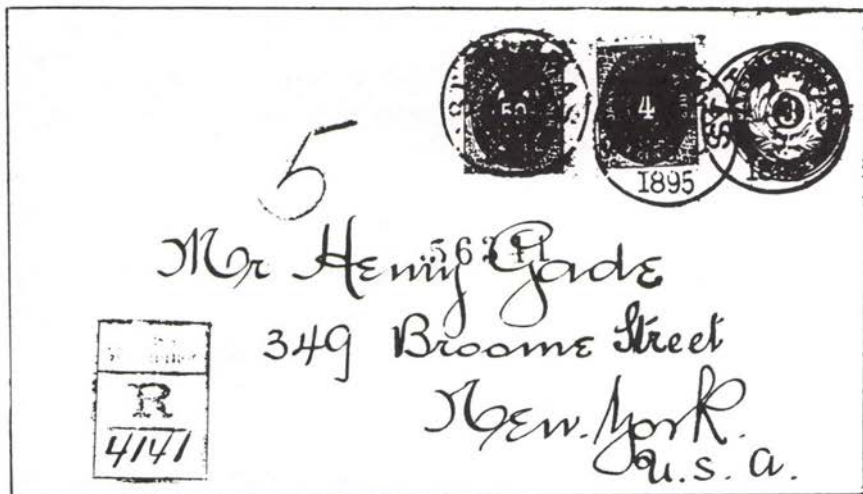 50 4 3
1895
5
Mr Henry Gade
349 Broome Street
New. York.
U. S. A.
R
4141